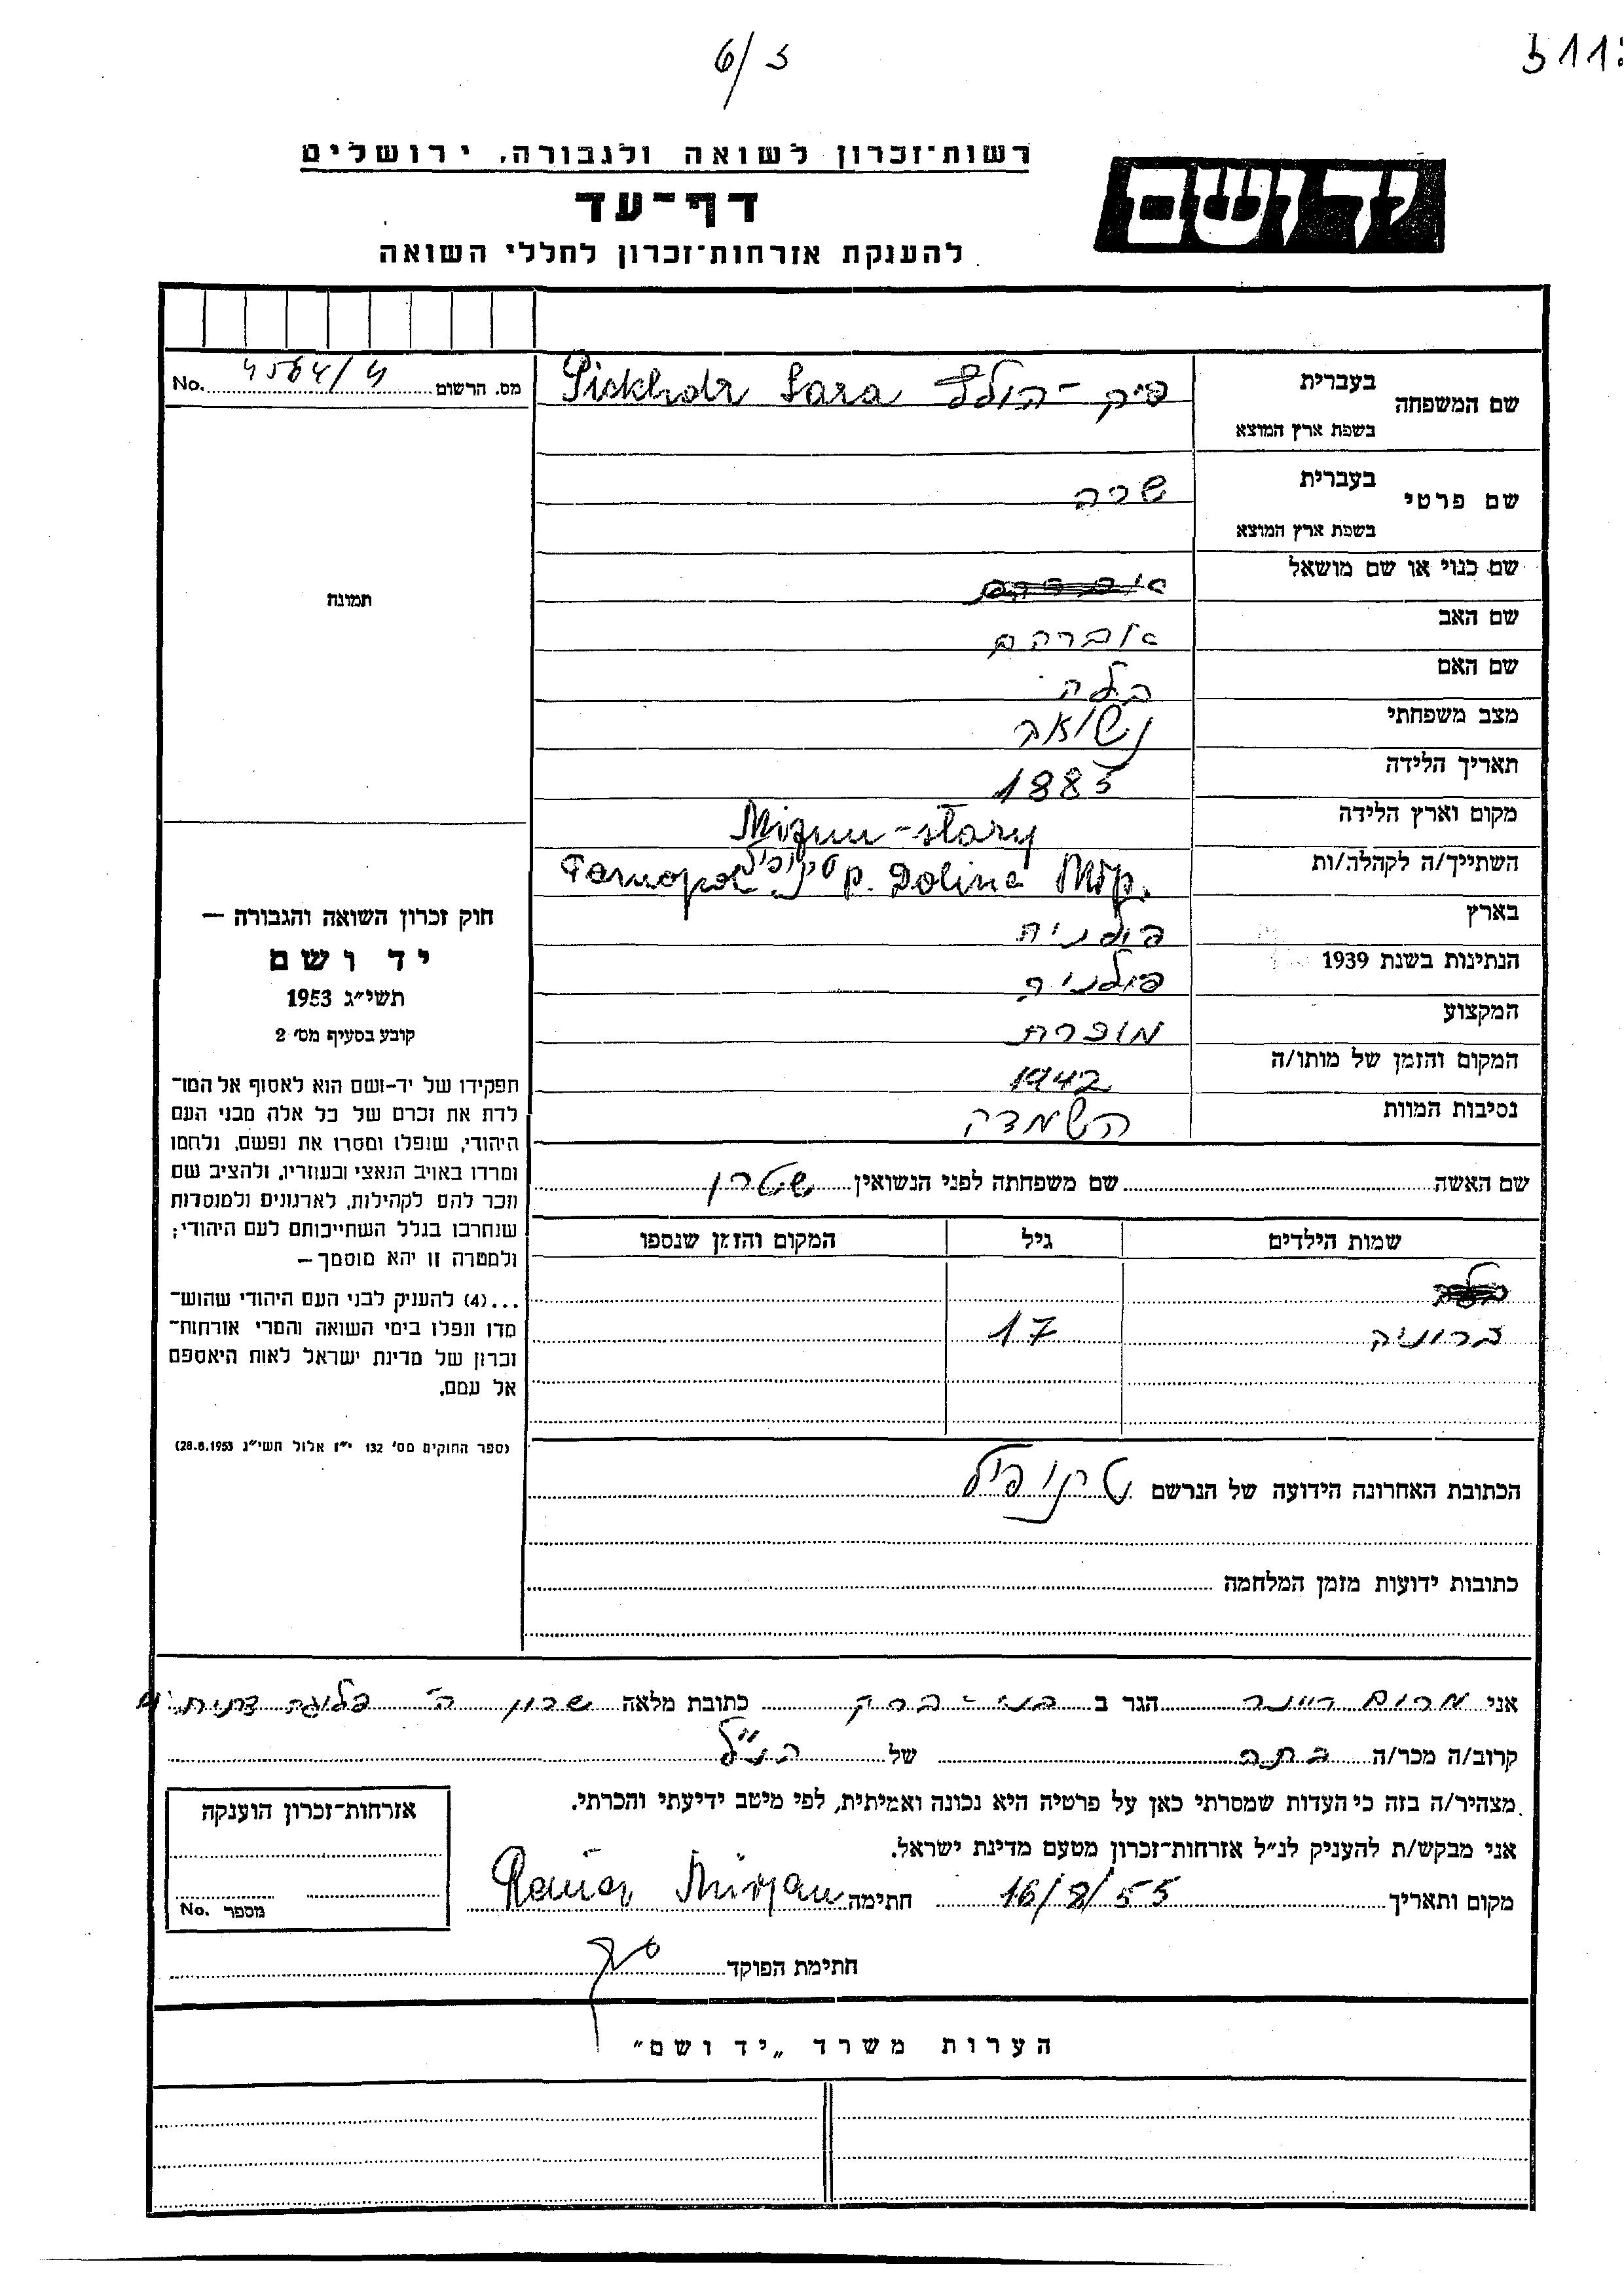 6/5
יד ושם
רשות־זכרון לשואה ולגבורה, ירושלים
דף־עד
להענקת אזרחות־זכרון לחללי השואה
מס. הרשום 4564/ No.
שם המשפחה
בעברית
פיק - הולץ Sara
בשפת ארץ המוצא
שם פרטי
בעברית
שרה
בשפת ארץ המוצא
שם כנוי או שם מושאל
שם האב
אברהם
שם האם
בילה
מצב משפחתי
נשואה
תאריך הלידה
1885
מקום וארץ הלידה
Mizun-stary
השתייך/ה לקהלה/ות
p. Dolina Młp. Tarnopol
בארץ
פולניה
הנתינות בשנת 1939
פולניה
המקצוע
סוחרת
המקום והזמן של מותו/ה
1942
נסיבות המוות
השמדה
שם האשה
שם משפחתה לפני הנשואין שטרן
שמות הילדים גיל המקום והזמן שנספו
ברוניה 17
הכתובת האחרונה הידועה של הנרשם
כתובות ידועות מזמן המלחמה
תמונה
חוק זכרון השואה והגבורה —
יד ושם
תשי״ג 1953
קובע בסעיף מס׳ 2
תפקידו של יד-ושם הוא לאסוף אל המו־
לדת את זכרם של כל אלה מבני העם
היהודי, שנפלו ומסרו את נפשם, נלחמו
ומרדו באויב הנאצי ובעוזריו, ולהציב שם
וזכר להם לקהילות, לארגונים ולמוסדות
שנחרבו בגלל השתייכותם לעם היהודי;
ולמטרה זו יהא מוסמך —
...(4) להעניק לבני העם היהודי שהוש־
מדו ונפלו בימי השואה והמרי אזרחות־
זכרון של מדינת ישראל לאות היאספם
אל עמם.
(ספר החוקים מס׳ 132 י״ז אלול תשי״ג 28.8.1953)
אני מרים ריינר הגר ב בני - ברק כתובת מלאה שכון ה׳
קרוב/ה מכר/ה בתה של הנ״ל
מצהיר/ה בזה כי העדות שמסרתי כאן על פרטיה היא נכונה ואמיתית, לפי מיטב ידיעתי והכרתי.
אני מבקש/ת להעניק לנ״ל אזרחות־זכרון מטעם מדינת ישראל.
מקום ותאריך 16/8/55 חתימה
חתימת הפוקד
אזרחות־זכרון הוענקה
מספר No.
הערות משרד „יד ושם״